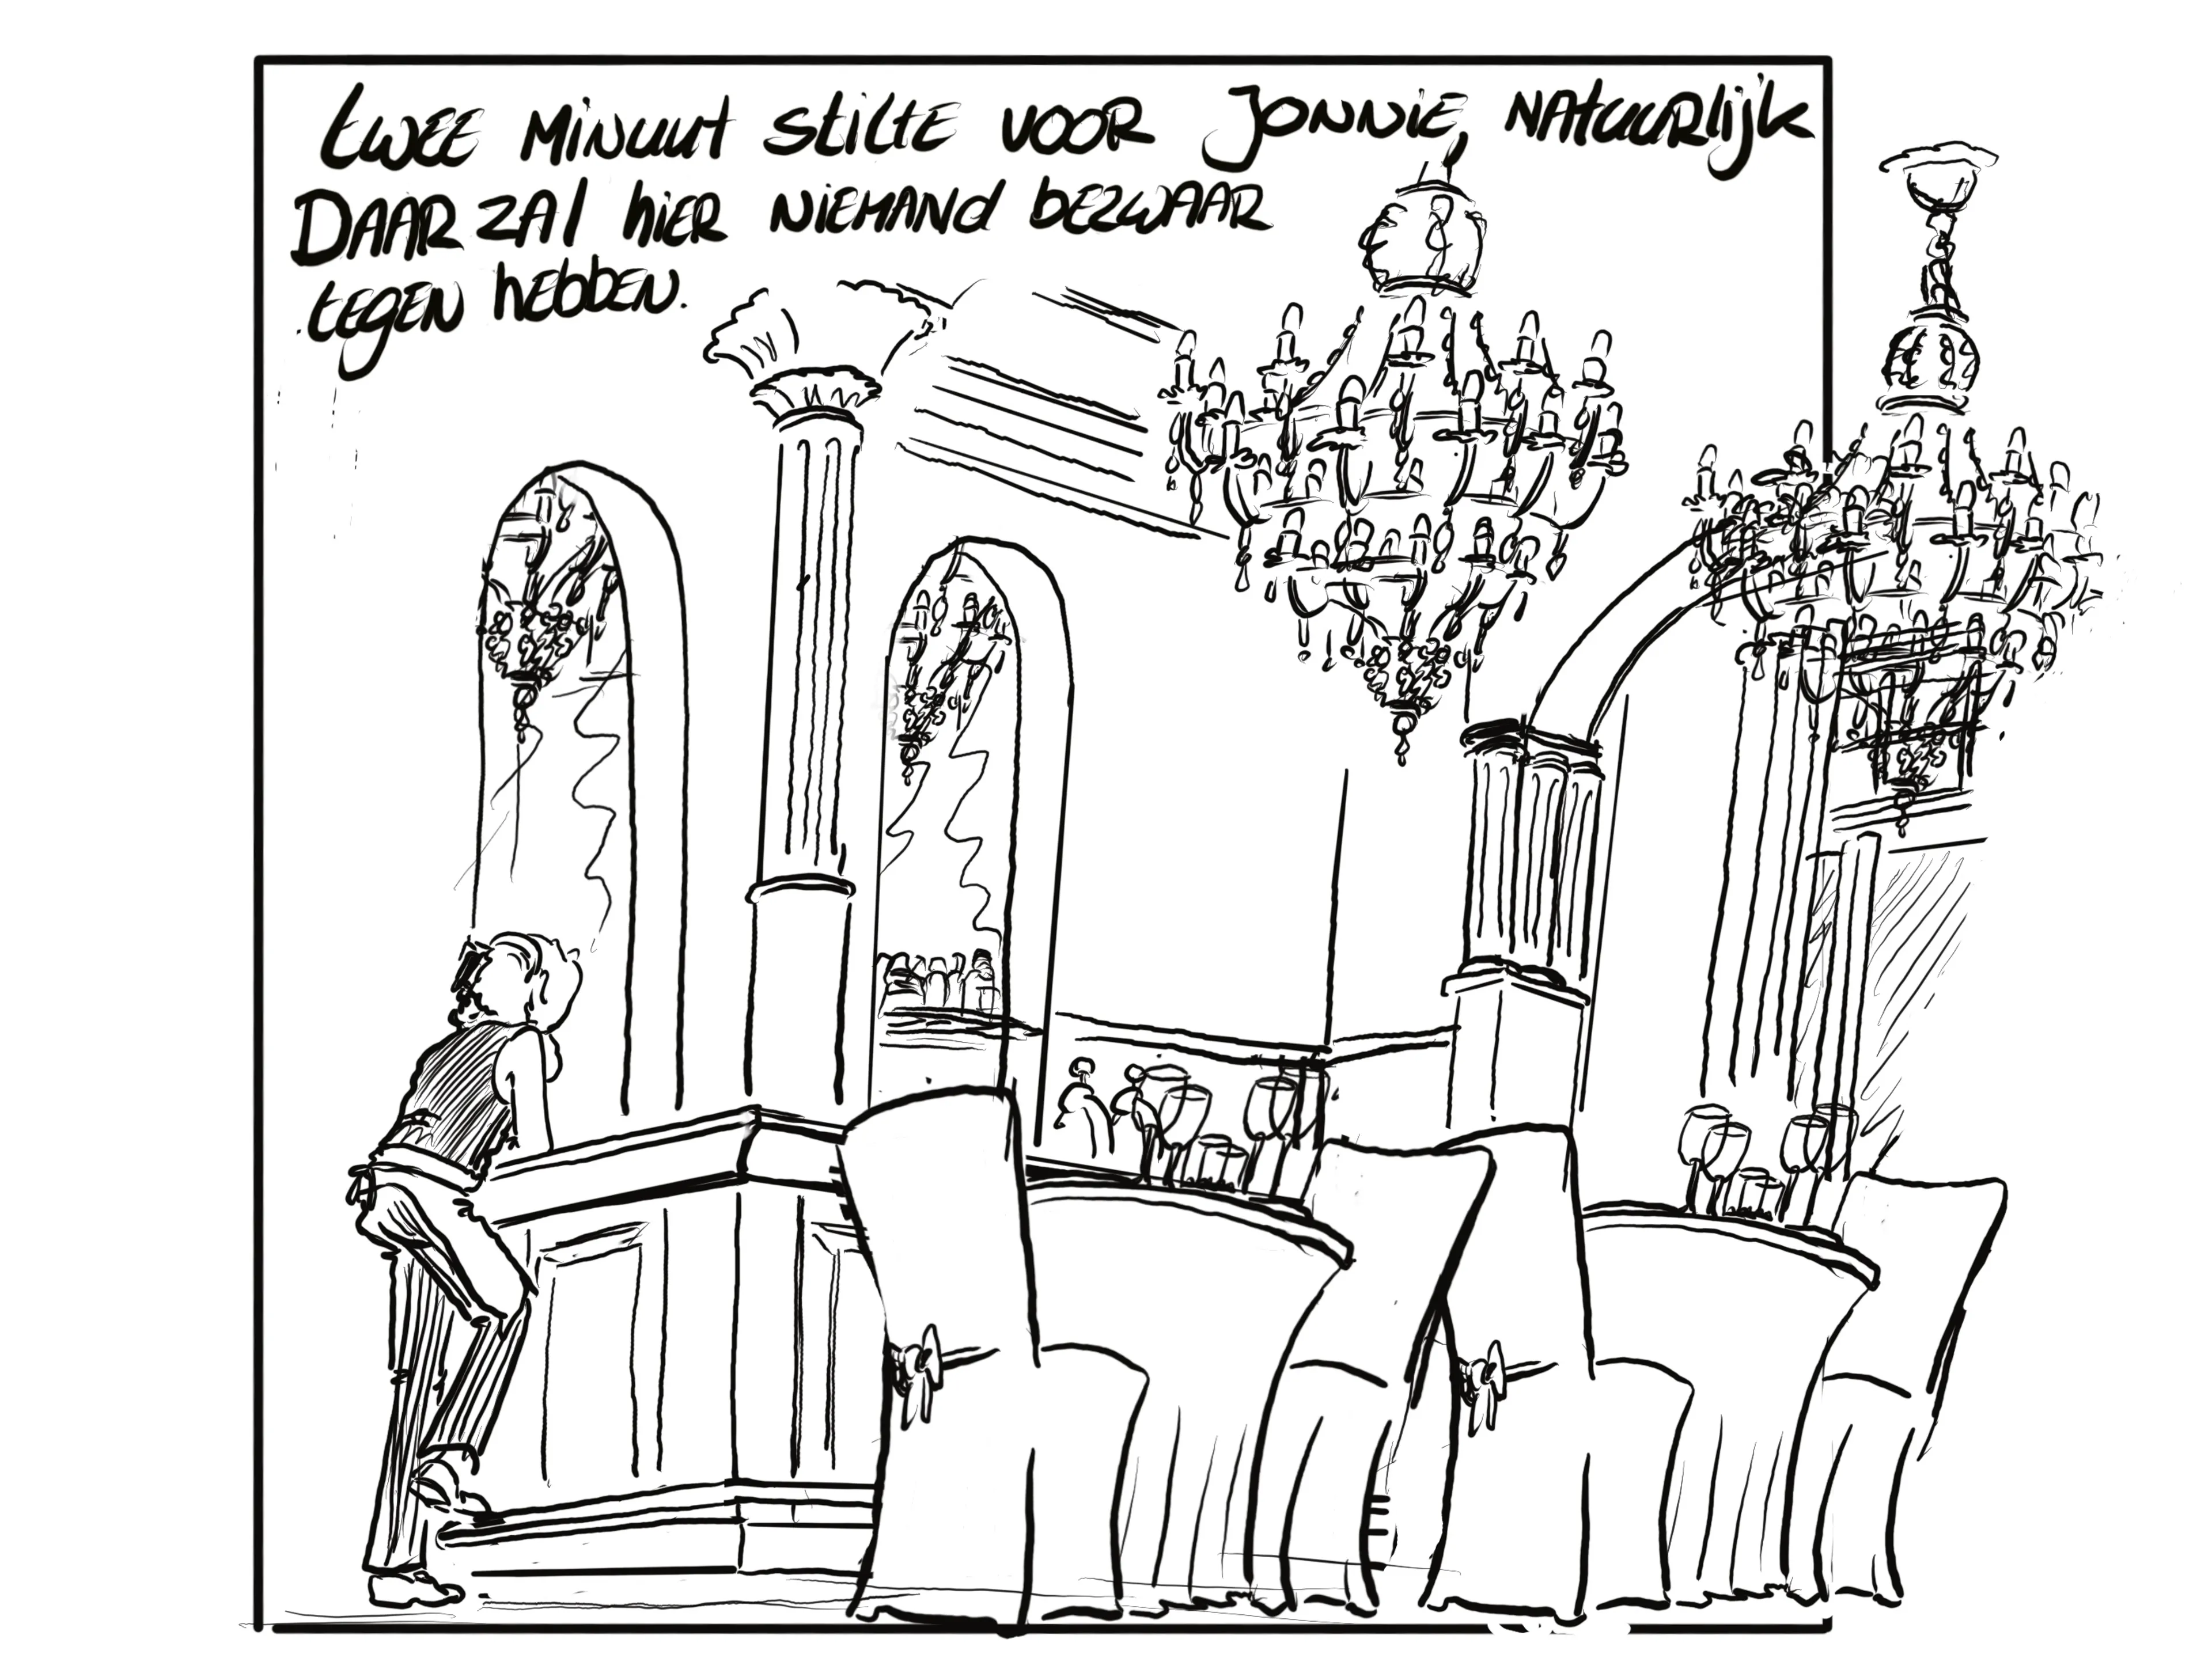 twee minuut stilte voor Jonnie, natuurlijk
Daar zal hier niemand bezwaar
tegen hebben.